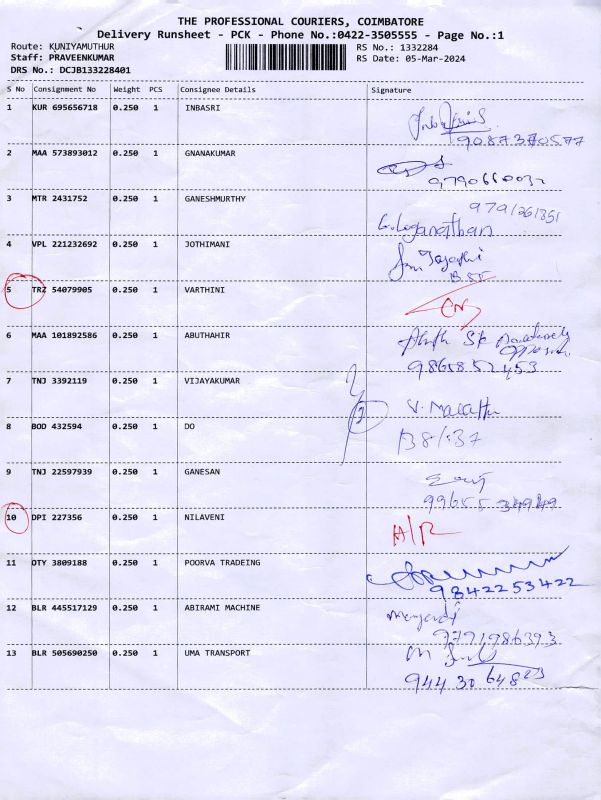 THE PROFESSIONAL COURIERS, COIMBATORE
Delivery Runsheet - PCK - Phone No.:0422-3505555 - Page No.:1
Route: KUNIYAMUTHUR RS No.: 1332284
Staff: PRAVEENKUMAR RS Date: 05-Mar-2024
DRS No.: DCJB133228401
S No Consignment No Weight PCS Consignee Details Signature
1 KUR 695656718 0.250 1 INBASRI
2 MAA 573893012 0.250 1 GNANAKUMAR
3 MTR 2431752 0.250 1 GANESHMURTHY
G.Loganathan
4 VPL 221232692 0.250 1 JOTHIMANI
5 TRZ 54079905 0.250 1 VARTHINI
6 MAA 101892586 0.250 1 ABUTHAHIR
7 TNJ 3392119 0.250 1 VIJAYAKUMAR
8 BOD 432594 0.250 1 DO
9 TNJ 22597939 0.250 1 GANESAN
10 DPI 227356 0.250 1 NILAVENI
11 OTY 3809188 0.250 1 POORVA TRADEING
9842253422
12 BLR 445517129 0.250 1 ABIRAMI MACHINE
9771986393
13 BLR 505690250 0.250 1 UMA TRANSPORT
9443064823